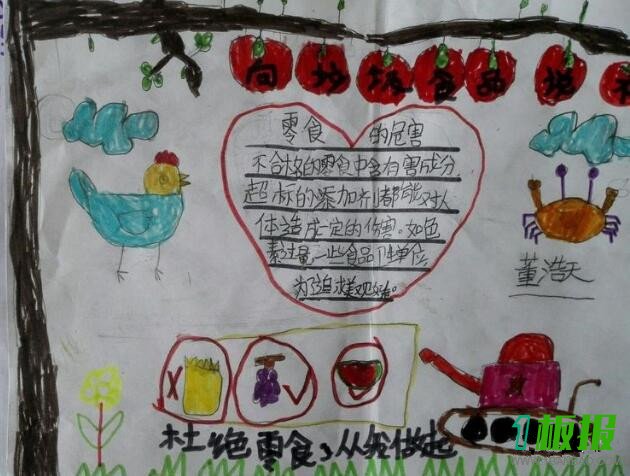 向垃圾食品说
零食 的危害
不合格的零食中含有害成分
超标的添加剂都能对人
体造成一定的伤害。如色
素过量一些食品
为了追求美观
董浩天
杜绝零食，从我做起
板报